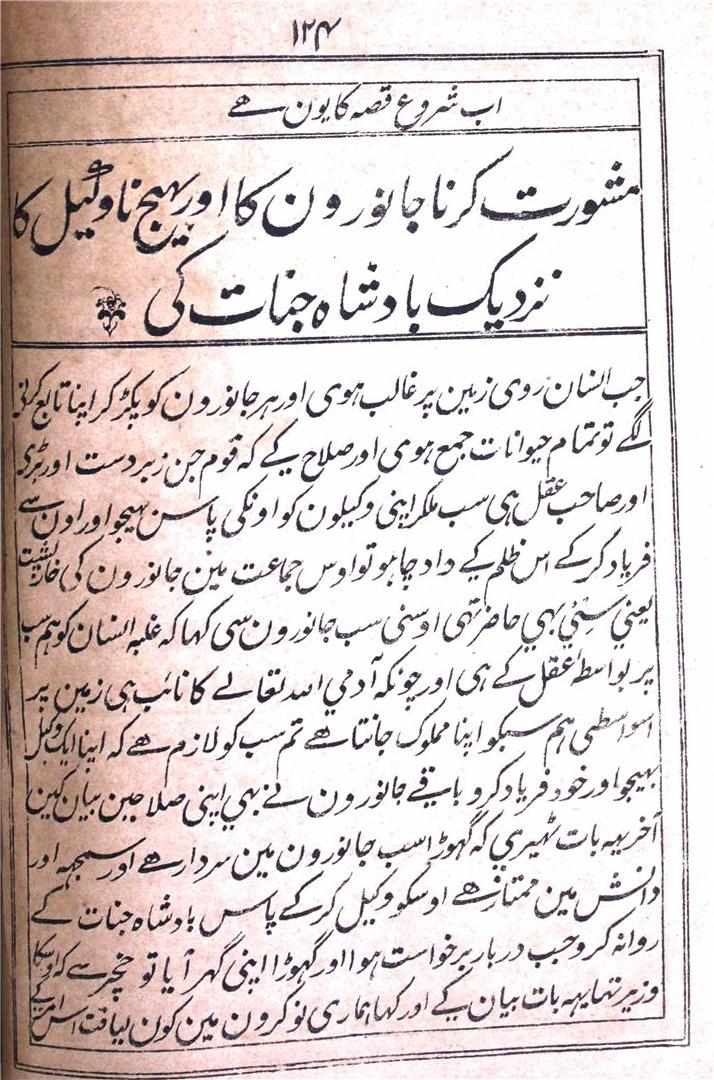 ۱۲۴
اب شروع قصہ کا یون ہے
مشورت کرنا جانورون کا اور بہیجنا وکیل کا
نزدیک بادشاہ جنات کی
جب انسان روی زمین پر غالب ہوی اور ہر جانورون کو پکڑ کر اپنا تابع کرنی
لگے تو تمام حیوانات جمع ہوی اور صلاح کے کہ قوم جن زبردست اور بڑی
اور صاحب عقل ہی سب ملکر اپنی وکیلون کو اونکی پاس بہیجو اور اون سے
فریاد کر کے اس ظلم کے داد چاہو تو اوس جماعت مین جانورون کی خارپشت
یعنی سہی بہی حاضر تہی اوسنی سب جانورون سی کہا کہ غلبہ انسان کو ہم سب
پر بواسطۂ عقل کے ہی اور چونکہ آدمی اللہ تعالے کا نائب ہی زمین پر
اسواسطی ہم سبکو اپنا مملوک جانتا ہے تم سب کو لازم ہے کہ اپنا ایک وکیل
بہیجو اور خود فریاد کرو باقے جانورون نے بہی اپنی صلاحین بیان کین
آخر یہہ بات ٹہیری کہ گہوڑا سب جانورون مین سردار ہے اور سمجہہ اور
دانش مین ممتاز ہے اوسکو وکیل کر کے پاس بادشاہ جنات کے
روانہ کرو جب دربار برخواست ہوا اور گہوڑا اپنی گہر آیا تو خچر سے کہ اوسکا
وزیر تہا یہہ بات بیان کے اور کہا ہماری نوکرون مین کون لیاقت اس امر کے